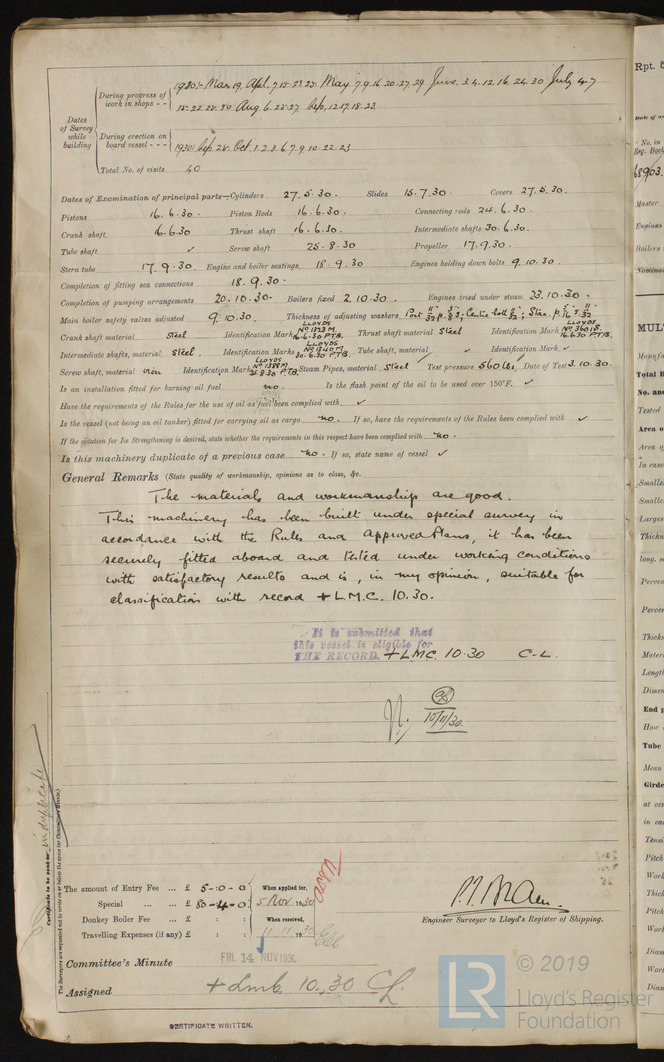 1930:- Mar 19, Apl. 7.15.23.25. May 7.9.16.20.27.29 June. 3.4.12.16.24.30 July 4.7
During progress of work in shops - -
18.22.25.30 Aug. 6.25.27. Sep. 12.17.18.23
Dates of Survey while building
During erection on board vessel - - -
1930: Sep 28. Oct. 1.2.3.6.7.9.10.22.23
Total No. of visits 40
Dates of Examination of principal parts—Cylinders 27.5.30. Slides 15.7.30. Covers 27.5.30.
Pistons 16.6.30. Piston Rods 16.6.30. Connecting rods 24.6.30.
Crank shaft, 16.6.30 Thrust shaft 16.6.30. Intermediate shafts 30.6.30.
Tube shaft ✓ Screw shaft 25.8.30 Propeller 17.9.30.
Stern tube 17.9.30. Engine and boiler seatings 18.9.30 Engines holding down bolts 9.10.30.
Completion of fitting sea connections 18.9.30.
Completion of pumping arrangements 20.10.30. Boilers fixed 2.10.30. Engines tried under steam 23.10.30.
Main boiler safety valves adjusted 9.10.30. Thickness of adjusting washers
Crank shaft material Steel Identification Mark LLOYDS No 1323 M. 16.6.30 P.T.B. Thrust shaft material Steel Identification Mark LLOYDS No 36015. 16.6.30 P.T.B.
Intermediate shafts, material Steel. Identification Marks LLOYDS No 1340 M. 30.6.30 P.T.B. Tube shaft, material ✓ Identification Mark ✓
Screw shaft, material iron Identification Mark LLOYDS No 1388 M 25.8.30 P.T.B. Steam Pipes, material Steel Test pressure 560 lbs, Date of Test 3.10.30.
Is an installation fitted for burning oil fuel no. Is the flash point of the oil to be used over 150°F. ✓
Have the requirements of the Rules for the use of oil as fuel been complied with ✓
Is the vessel (not being an oil tanker) fitted for carrying oil as cargo no. If so, have the requirements of the Rules been complied with ✓
If the notation for Ice Strengthening is desired, state whether the requirements in this respect have been complied with no.
Is this machinery duplicate of a previous case no. If so, state name of vessel ✓
General Remarks (State quality of workmanship, opinions as to class, &c.
The materials and workmanship are good.
This machinery has been built under special survey in
accordance with the Rules and approved Plans, it has been
securely fitted aboard and tested under working conditions
with satisfactory results and is, in my opinion, suitable for
classification with record + L.M.C. 10.30.
It is submitted that
this vessel is eligible for
THE RECORD. + LMC. 10.30 C.L.
10/11/30.
Certificate to be sent to in duplicate
The Surveyors are requested not to write on or below the space for Committee's Minute.)
The amount of Entry Fee ... £ 5-0-0 When applied for,
Special ... ... £ 80-4-0 5 Nov 1930
Donkey Boiler Fee ... £ : : When received,
Travelling Expenses (if any) £ : : 11.11.1930
Engineer Surveyor to Lloyd's Register of Shipping.
Committee's Minute FRI. 14 NOV 1930
Assigned + Lmb 10.30 CL.
CERTIFICATE WRITTEN.
LR © 2019
Lloyd's Register
Foundation
Rpt. 5
No. in
Reg. Book
68903.
Master
Boilers
MUL
Total
No. and
Tested
Area o
Area of
In case
Smalle
Smalle
Large
Thickn
long. s
Percen
Percen
Thickn
Mater
Lengt
Dimen
End p
How
Tube
Mean
Girde
at ce
in ea
Tensi
Pitch
Work
Thick
Pitch
Work
Diam
Work
Diam